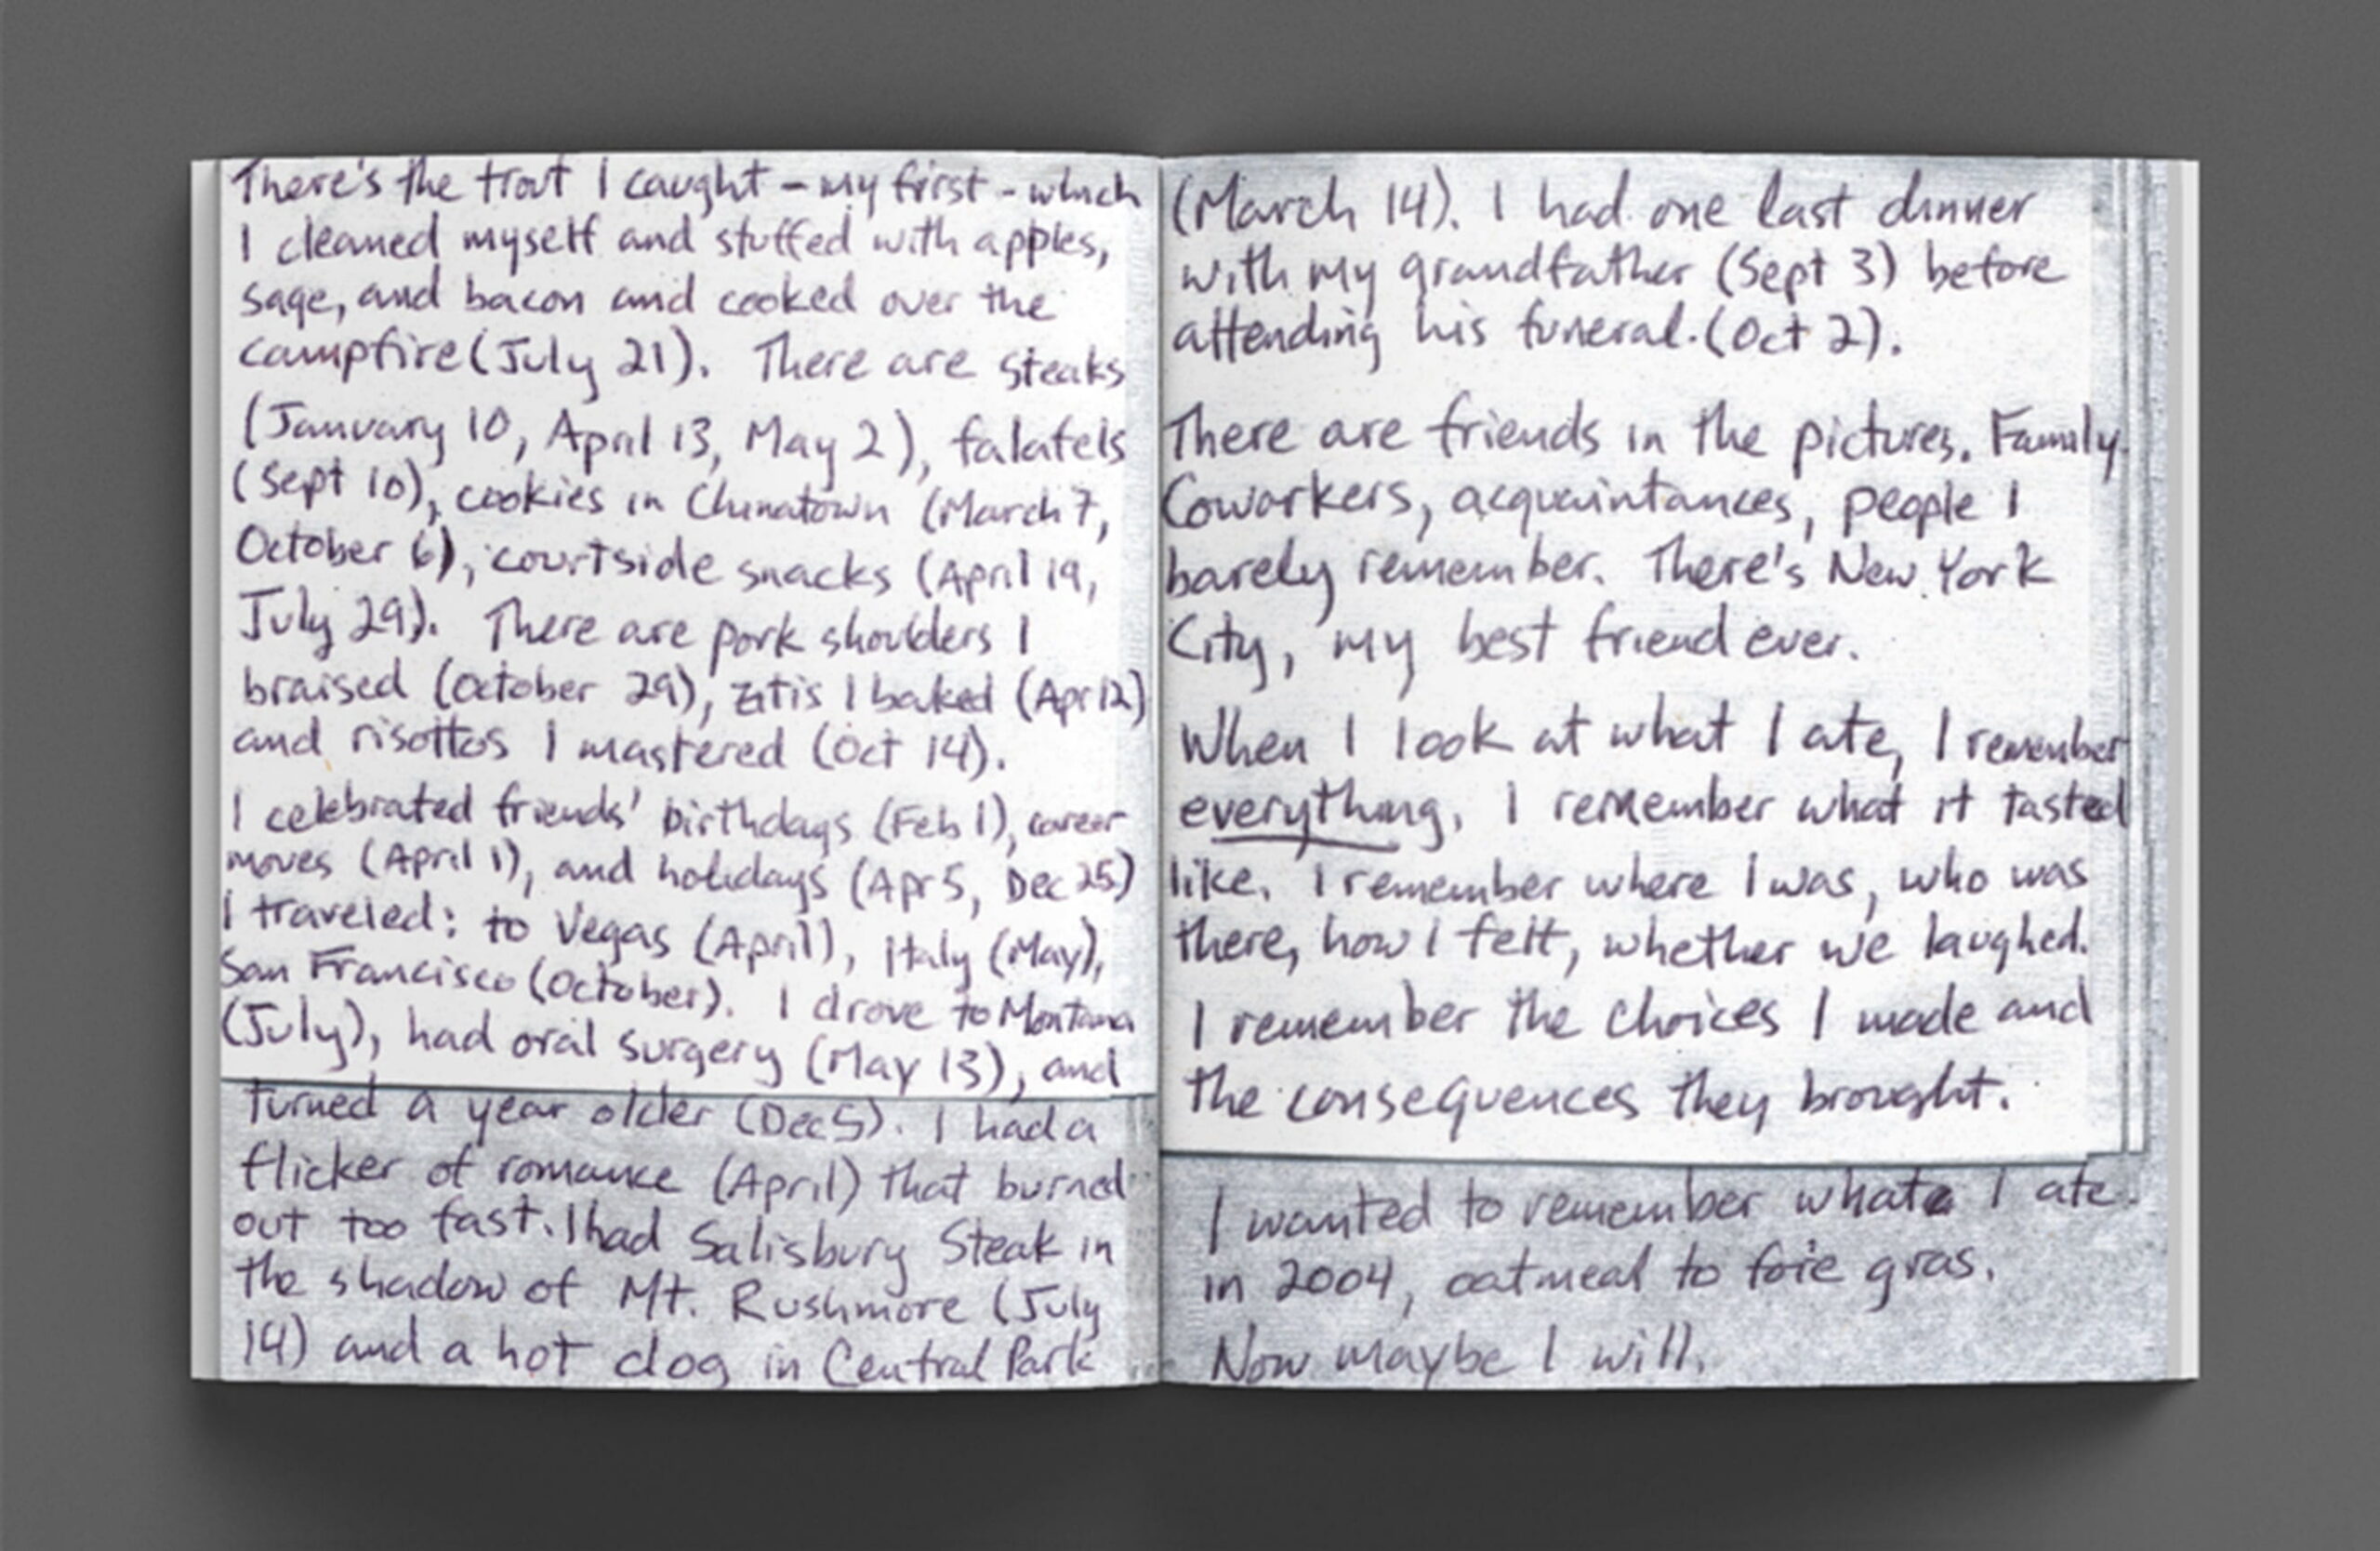 There's the trout I caught – my first – which
I cleaned myself and stuffed with apples,
sage, and bacon and cooked over the
campfire (July 21). There are steaks
(January 10, April 13, May 2), falafels
(Sept 10), cookies in Chinatown (March 7,
October 6), courtside snacks (April 19,
July 29). There are pork shoulders I
braised (October 29), zitis I baked (Apr 12)
and risottos I mastered (Oct 14).
I celebrated friends' birthdays (Feb 1), career
moves (April 1), and holidays (Apr 5, Dec 25)
I traveled: to Vegas (April), Italy (May),
San Francisco (October). I drove to Montana
(July), had oral surgery (May 13), and
turned a year older (Dec 5). I had a
flicker of romance (April) that burned
out too fast. I had Salisbury Steak in
the shadow of Mt. Rushmore (July
14) and a hot dog in Central Park
(March 14). I had one last dinner
with my grandfather (Sept 3) before
attending his funeral. (Oct 2).
There are friends in the pictures. Family.
Coworkers, acquaintances, people I
barely remember. There's New York
City, my best friend ever.
When I look at what I ate, I remember
everything. I remember what it tasted
like. I remember where I was, who was
there, how I felt, whether we laughed.
I remember the choices I made and
the consequences they brought.
I wanted to remember what I ate
in 2004, oatmeal to foie gras.
Now maybe I will.